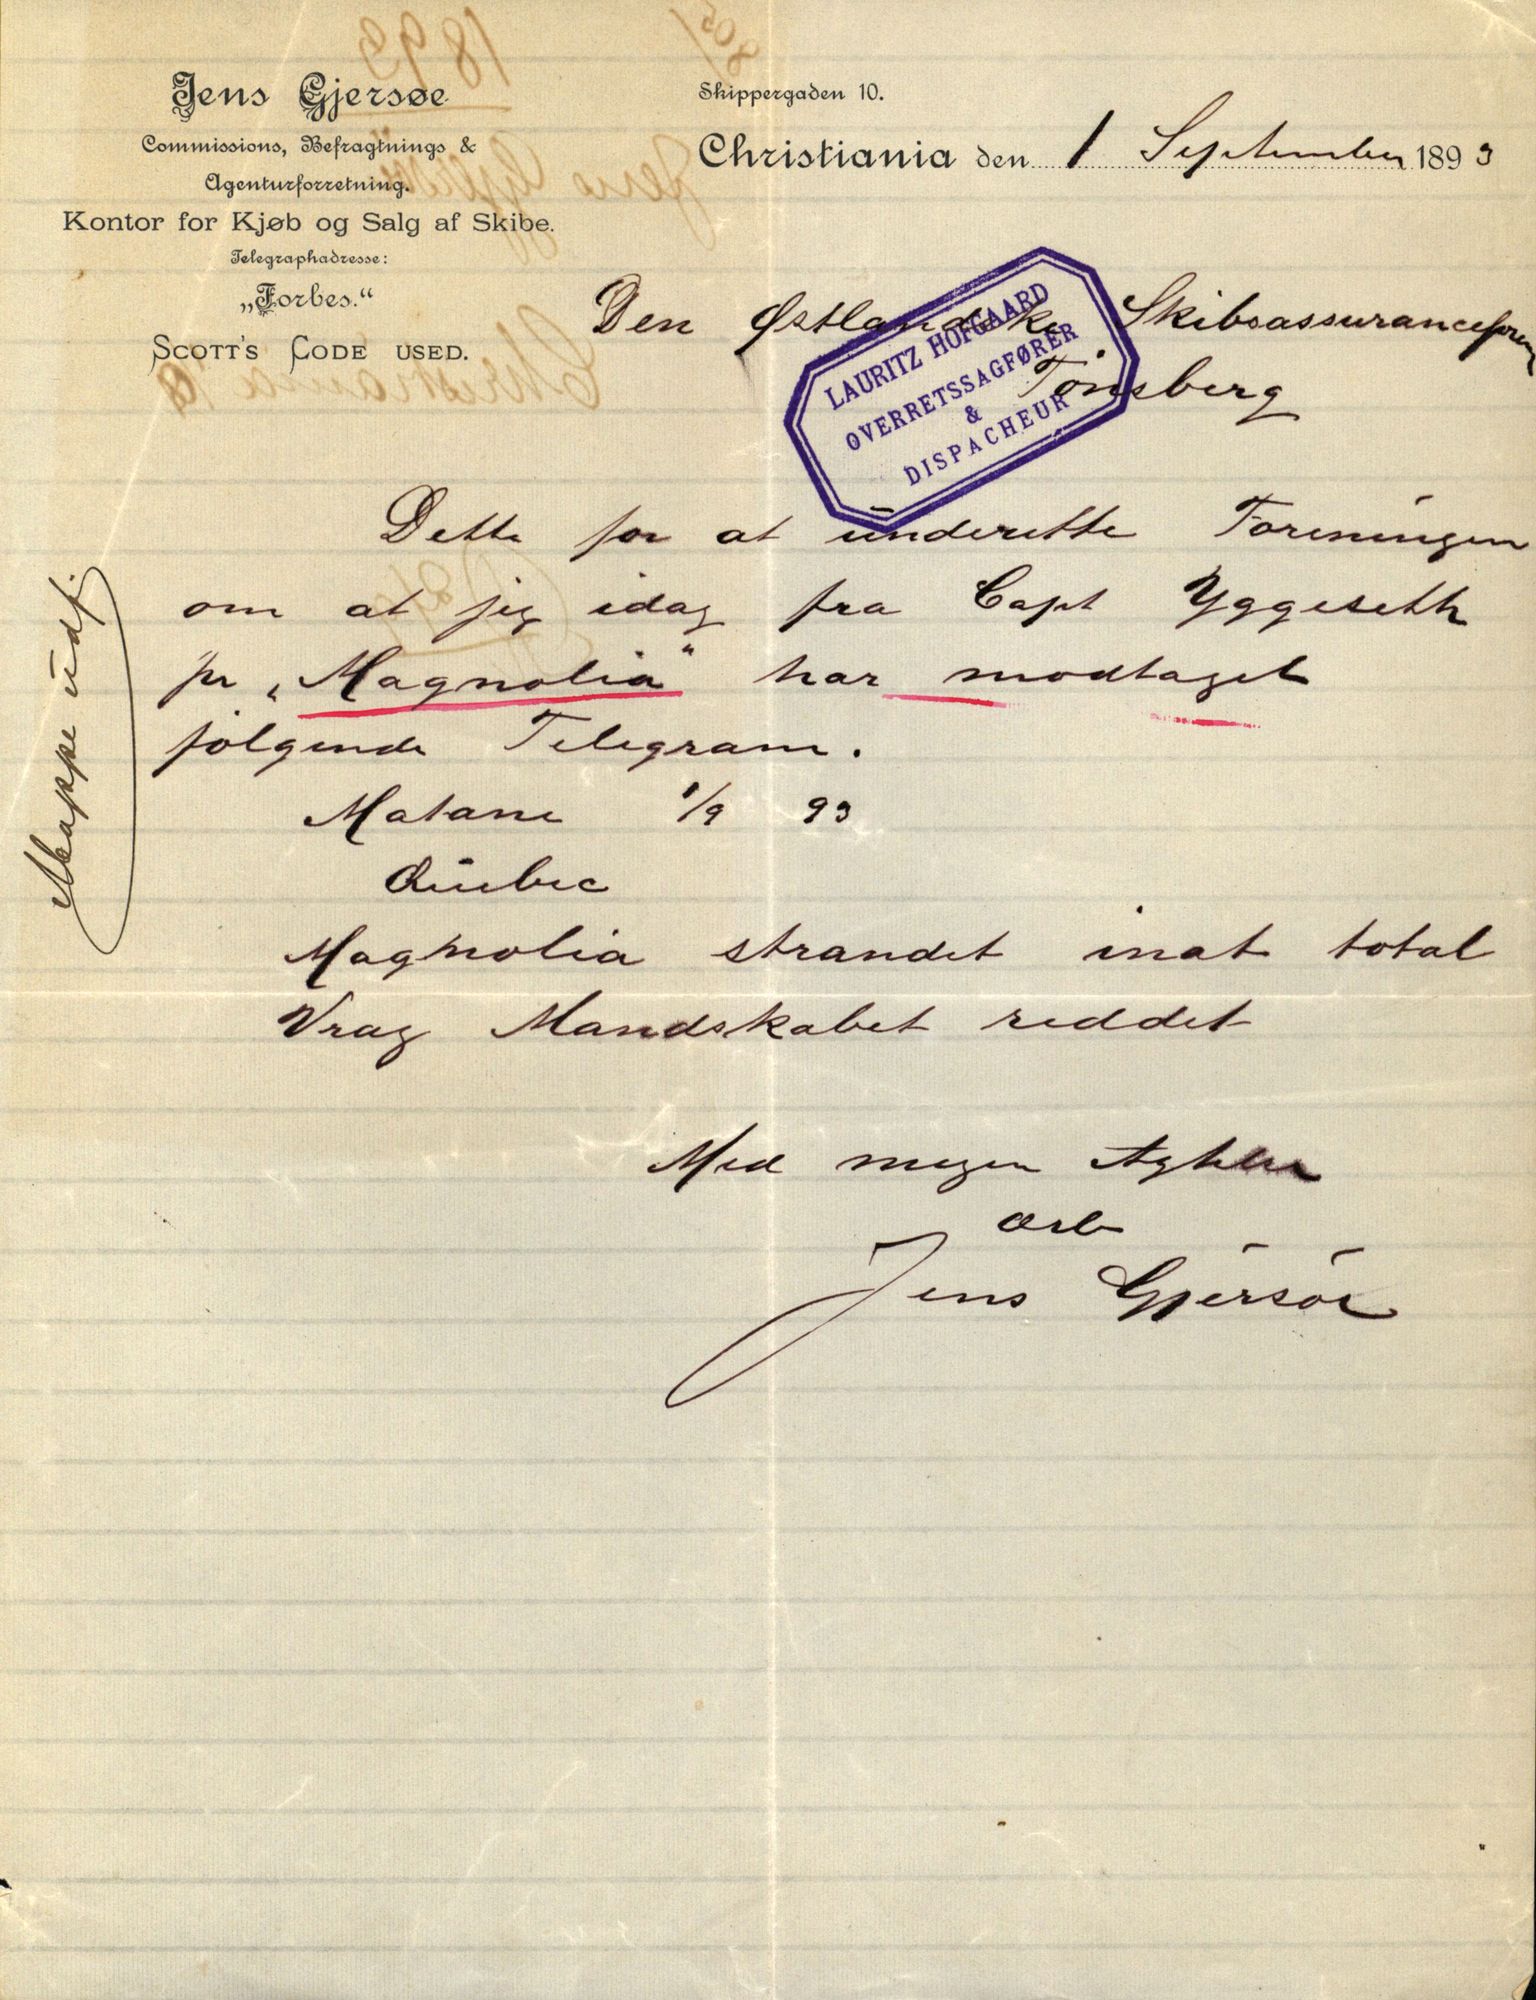 Jens Gjersøe
Commissions, Befragtnings &
Agenturforretning.
Kontor for Kjøb og Salg af Skibe.
Telegraphadresse:
„Forbes.“
SCOTT'S CODE USED.
Skippergaden 10.
Christiania den 1 September 1893
Den Østlandske Skibsassuranceforen
Tönsberg
LAURITZ HOFGAARD
OVERRETSSAGFØRER
&
DISPACHEUR
Dette for at underette Foreningen
om at jeg idag fra Capt Yggeseth
pr „Magnolia" har modtaget
følgende Telegram.
Matane 1/9 93
Quebec
Magnolia strandet inat total
Vrag Mandskabet reddet
Med megen Agtelse
Jens Gjersöe
Mappe udf.
1893
Jens Gjersöe
Christiania